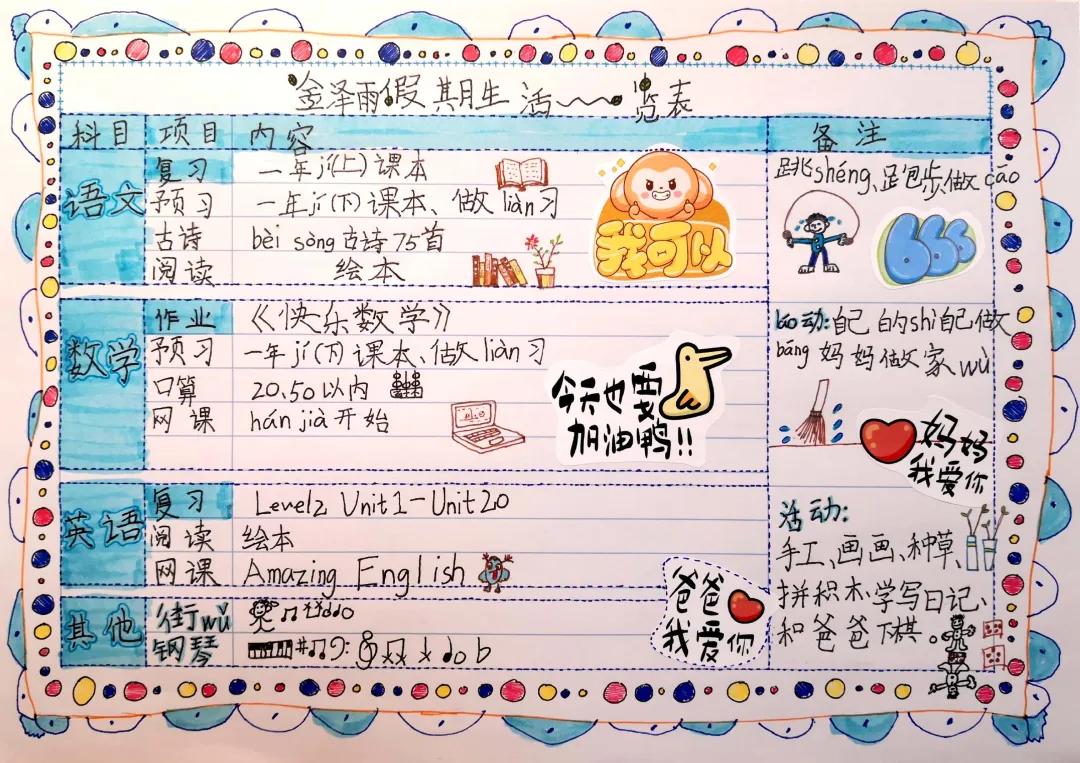 金泽雨假期生活一览表
科目 项目 内容 备注
语文 复习 一年jí(上)课本
预习 一年jí(下)课本、做liàn习
古诗 bèi sòng古诗75首
阅读 绘本
我可以
跳shéng、跑步、做cāo
666
数学 作业 《快乐数学》
预习 一年jí(下)课本、做liàn习
口算 20.50以内
网课 hán jià开始
今天也要
加油鸭!!
láo动:自己的shì自己做
bāng妈妈做家wù
妈妈
我爱你
英语 复习 Level2 Unit1-Unit20
阅读 绘本
网课 Amazing English
活动:
手工、画画、种草、
拼积木、学写日记、
和爸爸下棋。
其他 街wǔ
钢琴
爸爸
我爱你